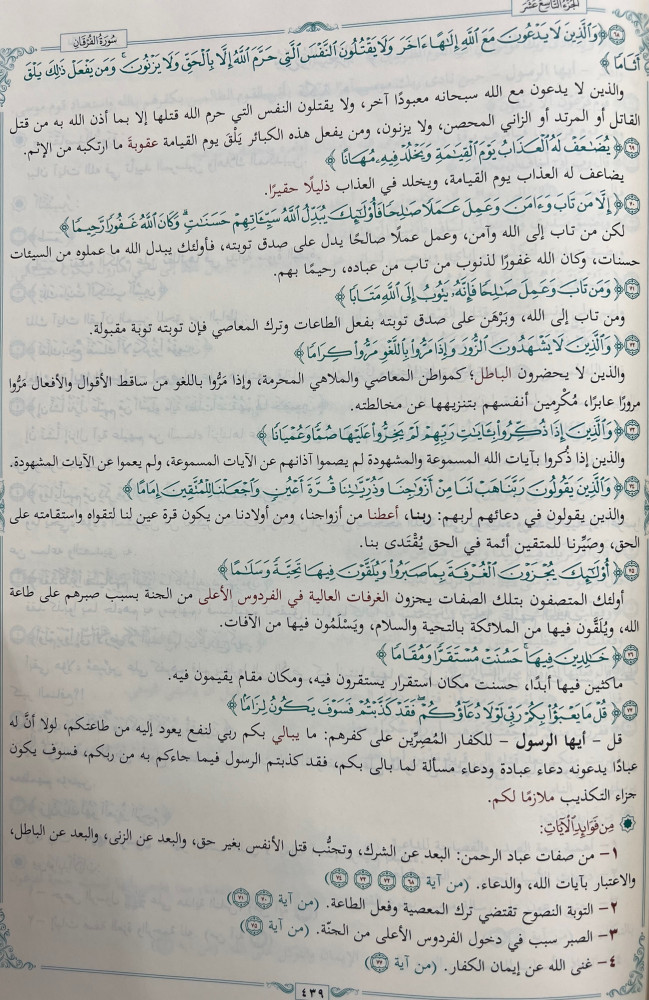 الجُزءُ التَّاسِعَ عَشَرَ
سُورَةُ الفُرْقَانِ
﴿٦٨﴾ ﴿وَالَّذِينَ لَا يَدْعُونَ مَعَ اللَّهِ إِلَٰهًا ءَاخَرَ وَلَا يَقْتُلُونَ النَّفْسَ الَّتِي حَرَّمَ اللَّهُ إِلَّا بِالْحَقِّ وَلَا يَزْنُونَ ۚ وَمَن يَفْعَلْ ذَٰلِكَ يَلْقَ
أَثَامًا﴾
والذين لا يدعون مع الله سبحانه معبودًا آخر، ولا يقتلون النفس التي حرم الله قتلها إلا بما أذن الله به من قتل
القاتل أو المرتد أو الزاني المحصن، ولا يزنون، ومن يفعل هذه الكبائر يَلْقَ يوم القيامة عقوبةَ ما ارتكبه من الإثم.
﴿٦٩﴾ ﴿يُضَٰعَفْ لَهُ الْعَذَابُ يَوْمَ الْقِيَٰمَةِ وَيَخْلُدْ فِيهِ مُهَانًا﴾
يضاعف له العذاب يوم القيامة، ويخلد في العذاب ذليلًا حقيرًا.
﴿٧٠﴾ ﴿إِلَّا مَن تَابَ وَءَامَنَ وَعَمِلَ عَمَلًا صَٰلِحًا فَأُولَٰئِكَ يُبَدِّلُ اللَّهُ سَيِّـَٔاتِهِمْ حَسَنَٰتٍ ۗ وَكَانَ اللَّهُ غَفُورًا رَّحِيمًا﴾
لكن من تاب إلى الله وآمن، وعمل عملًا صالحًا يدل على صدق توبته، فأولئك يبدل الله ما عملوه من السيئات
حسنات، وكان الله غفورًا لذنوب من تاب من عباده، رحيمًا بهم.
﴿٧١﴾ ﴿وَمَن تَابَ وَعَمِلَ صَٰلِحًا فَإِنَّهُ يَتُوبُ إِلَى اللَّهِ مَتَابًا﴾
ومن تاب إلى الله، وبَرْهَن على صدق توبته بفعل الطاعات وترك المعاصي فإن توبته توبة مقبولة.
﴿٧٢﴾ ﴿وَالَّذِينَ لَا يَشْهَدُونَ الزُّورَ وَإِذَا مَرُّوا بِاللَّغْوِ مَرُّوا كِرَامًا﴾
والذين لا يحضرون الباطل؛ كمواطن المعاصي والملاهي المحرمة، وإذا مَرُّوا باللغو من ساقط الأقوال والأفعال مَرُّوا
مرورًا عابرًا، مُكْرِمين أنفسهم بتنزيهها عن مخالطته.
﴿٧٣﴾ ﴿وَالَّذِينَ إِذَا ذُكِّرُوا بِـَٔايَٰتِ رَبِّهِمْ لَمْ يَخِرُّوا عَلَيْهَا صُمًّا وَعُمْيَانًا﴾
والذين إذا ذُكروا بآيات الله المسموعة والمشهودة لم يصموا آذانهم عن الآيات المسموعة، ولم يعموا عن الآيات المشهودة.
﴿٧٤﴾ ﴿وَالَّذِينَ يَقُولُونَ رَبَّنَا هَبْ لَنَا مِنْ أَزْوَٰجِنَا وَذُرِّيَّٰتِنَا قُرَّةَ أَعْيُنٍ وَاجْعَلْنَا لِلْمُتَّقِينَ إِمَامًا﴾
والذين يقولون في دعائهم لربهم: ربنا، أعطنا من أزواجنا، ومن أولادنا من يكون قرة عين لنا لتقواه واستقامته على
الحق، وصَيِّرنا للمتقين أئمة في الحق يُقْتَدى بنا.
﴿٧٥﴾ ﴿أُولَٰئِكَ يُجْزَوْنَ الْغُرْفَةَ بِمَا صَبَرُوا وَيُلَقَّوْنَ فِيهَا تَحِيَّةً وَسَلَٰمًا﴾
أولئك المتصفون بتلك الصفات يجزون الغرفات العالية في الفردوس الأعلى من الجنة بسبب صبرهم على طاعة
الله، ويُلَقَّون فيها من الملائكة بالتحية والسلام، ويَسْلَمُون فيها من الآفات.
﴿٧٦﴾ ﴿خَٰلِدِينَ فِيهَا ۚ حَسُنَتْ مُسْتَقَرًّا وَمُقَامًا﴾
ماكثين فيها أبدًا، حسنت مكان استقرار يستقرون فيه، ومكان مقام يقيمون فيه.
﴿٧٧﴾ ﴿قُلْ مَا يَعْبَؤُا بِكُمْ رَبِّي لَوْلَا دُعَاؤُكُمْ ۖ فَقَدْ كَذَّبْتُمْ فَسَوْفَ يَكُونُ لِزَامًا﴾
قل - أيها الرسول - للكفار المُصِرِّين على كفرهم: ما يبالي بكم ربي لنفع يعود إليه من طاعتكم، لولا أنَّ له
عبادًا يدعونه دعاء عبادة ودعاء مسألة لما بالى بكم، فقد كذبتم الرسول فيما جاءكم به من ربكم، فسوف يكون
جزاء التكذيب ملازمًا لكم.
مِن فَوَائِدِ الآيَاتِ:
١- من صفات عباد الرحمن: البعد عن الشرك، وتجنُّب قتل الأنفس بغير حق، والبعد عن الزنى، والبعد عن الباطل،
والاعتبار بآيات الله، والدعاء. (من آية ٦٨ ٧٢ ٧٣ ٧٤)
٢- التوبة النصوح تقتضي ترك المعصية وفعل الطاعة. (من آية ٧٠ ٧١)
٣- الصبر سبب في دخول الفردوس الأعلى من الجنّة. (من آية ٧٥)
٤- غنى الله عن إيمان الكفار. (من آية ٧٧)
٤٣٩